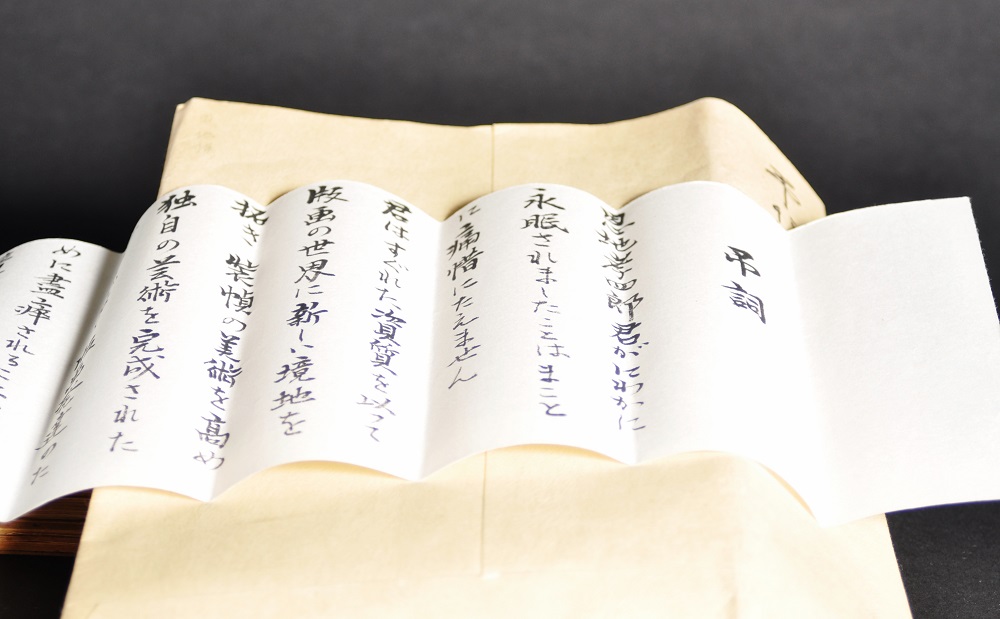 弔詞
恩地孝四郎君がにわかに
永眠されましたことはまこと
に痛惜にたえません
君はすぐれた資質を以って
版画の世界に新しい境地を
拓き装幀の美術を高め
独自の芸術を完成された
達のた
めに盡瘁される